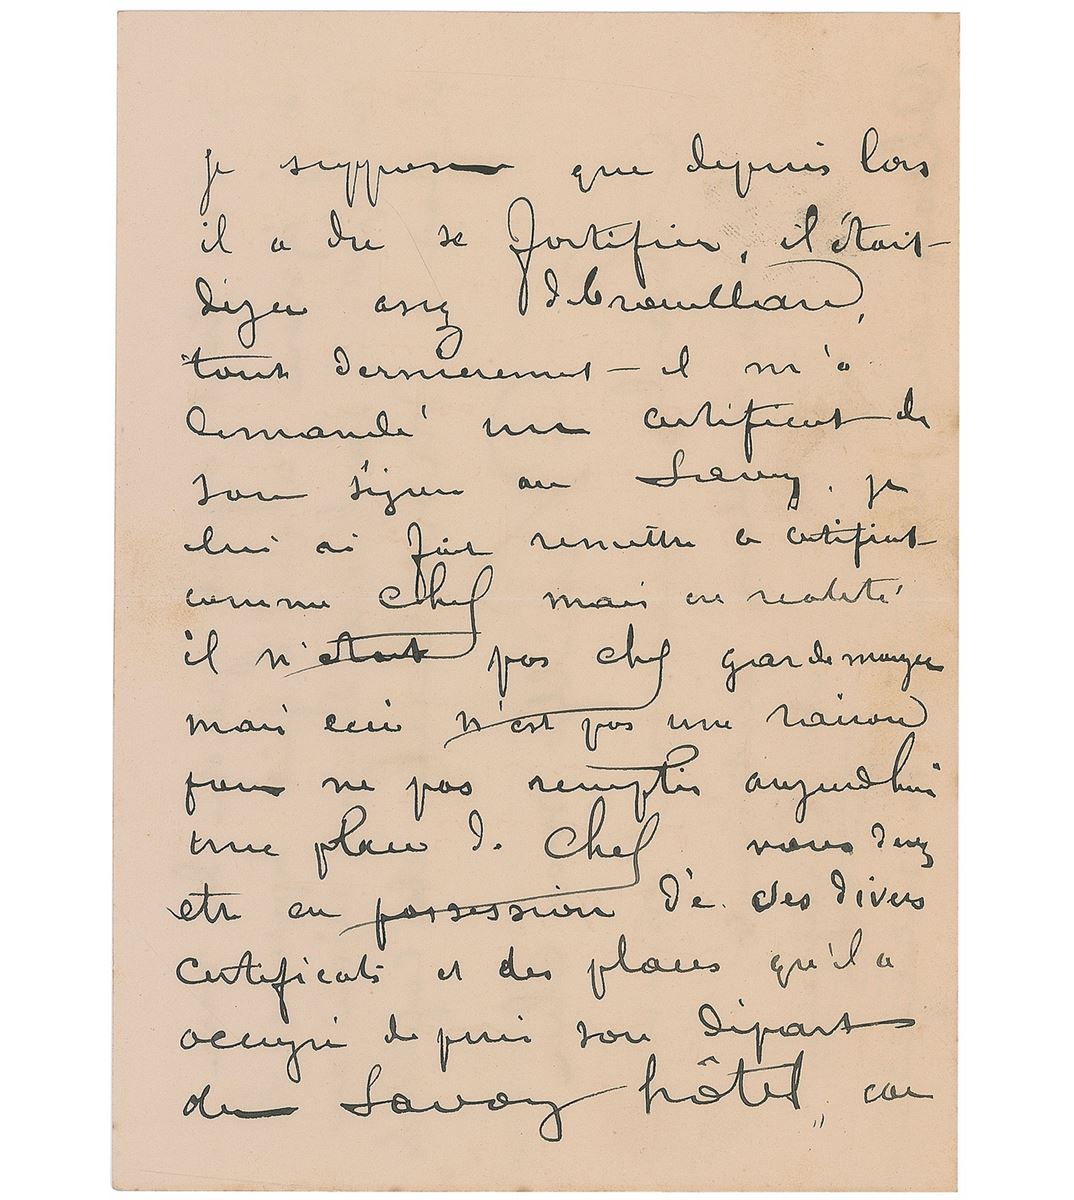 je suppose que depuis lors
il a du se fortifier, il était
dejea assez débrouillard,
tout dernierement il m'a
demandé un certificat de
son séjour au Savoy. je
lui ai fait remettre ce certificat
comme chef mais en realité
il n'était pas chef garde manger
mais ceci n'est pas une raison
pour ne pas remplir aujourd'hui
une place de Chef vous devez
etre en possession de ses divers
certificats et des places qu'il a
occupé depuis son départ
du Savoy hôtel, car